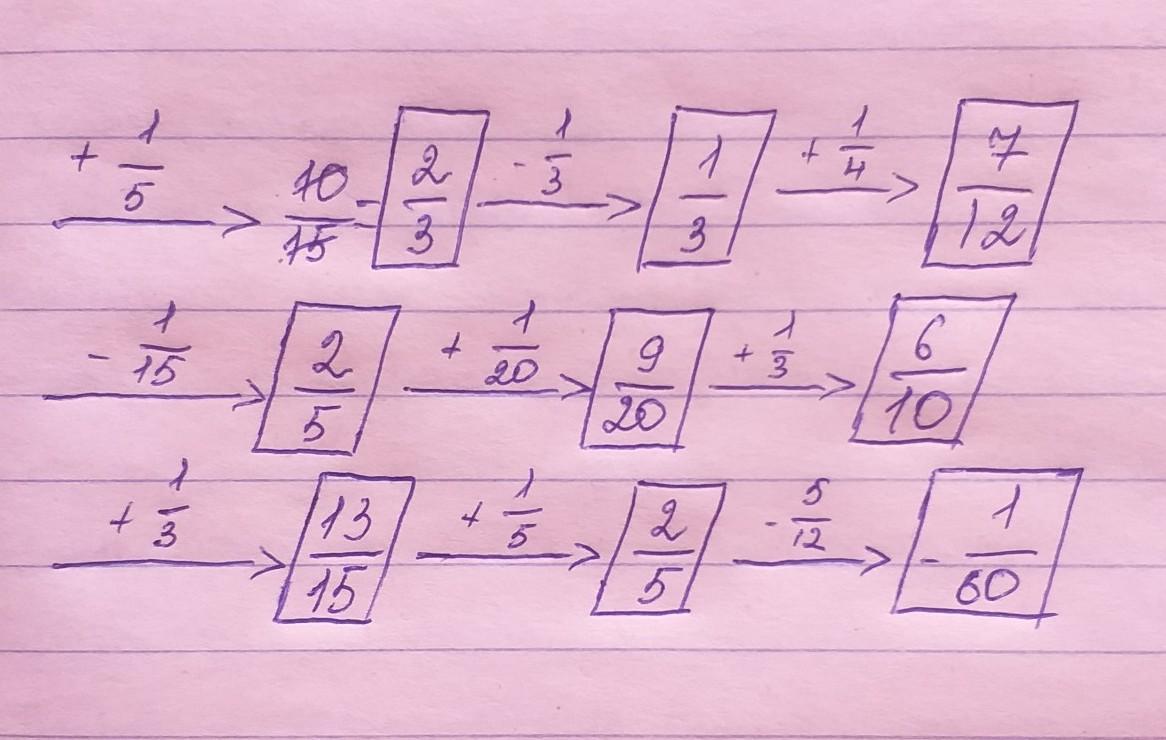 + 1/5 → 10/15 = 2/3 - 1/3 → 1/3 + 1/4 → 7/12
- 1/15 → 2/5 + 1/20 → 9/20 + 1/3 → 6/10
+ 1/3 → 13/15 + 1/5 → 2/5 - 5/12 → - 1/60